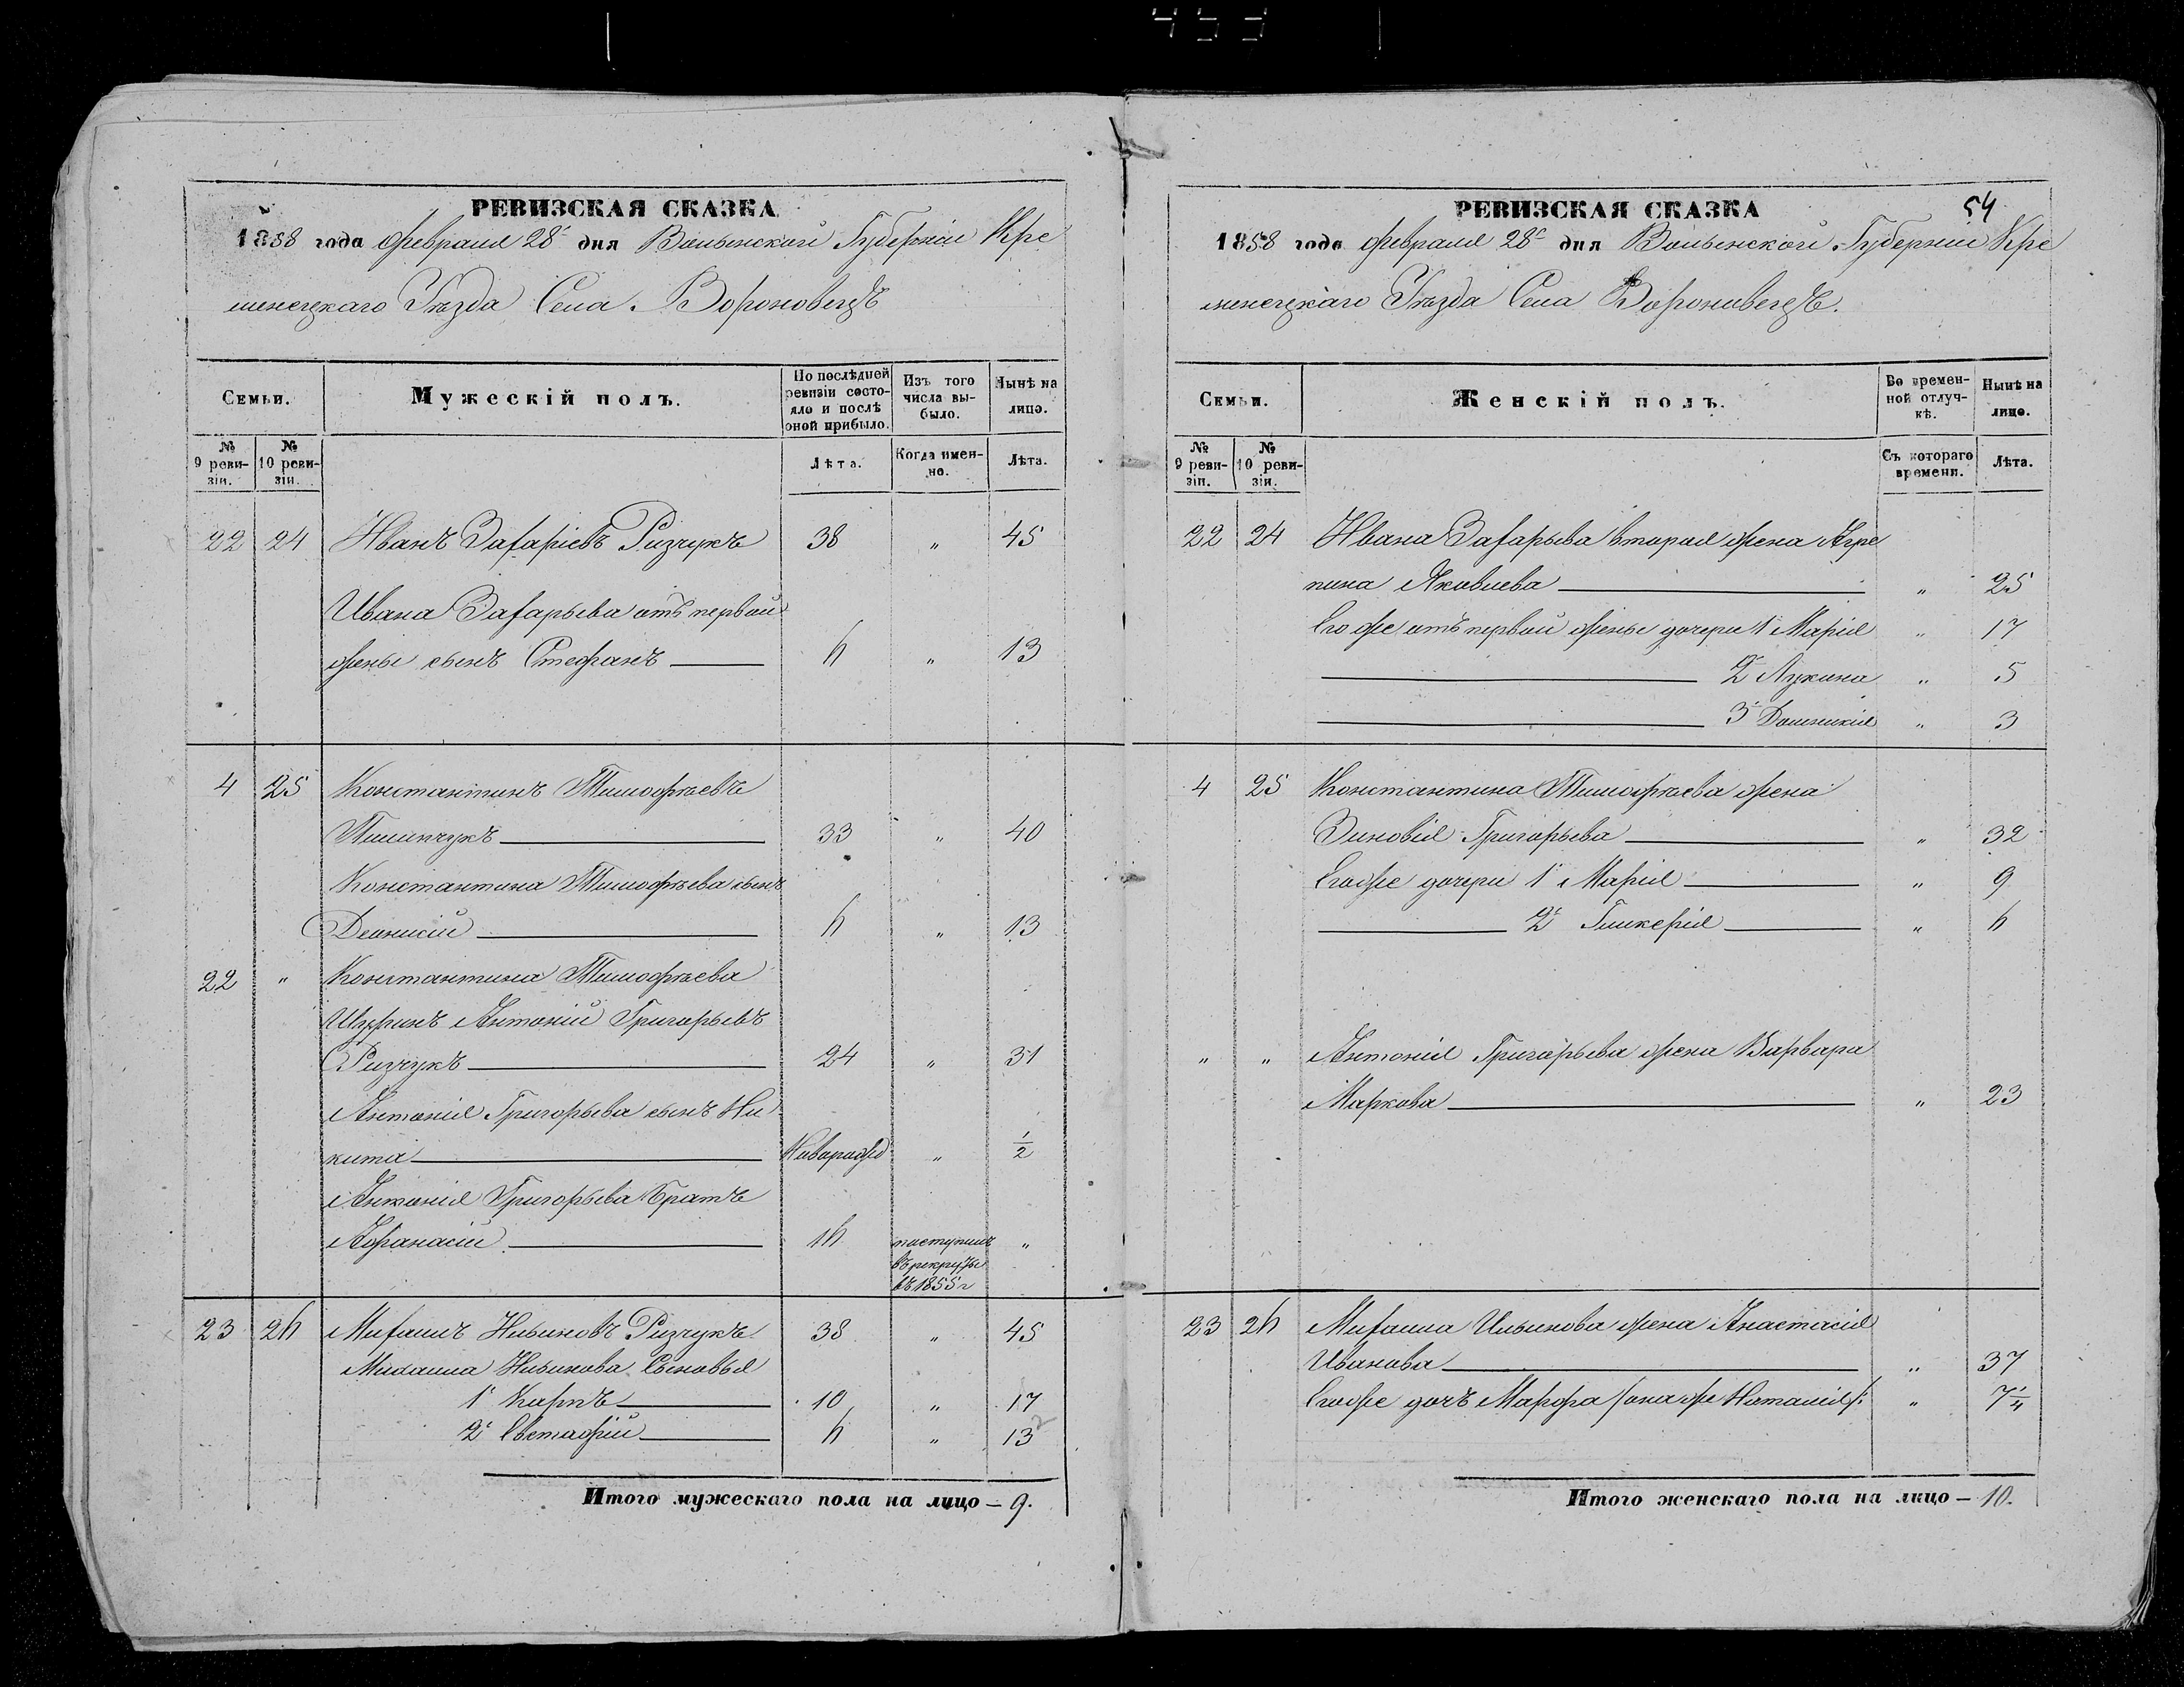 453
РЕВИЗСКАЯ СКАЗКА
1858 года Февраля 28 дня Волынской Губерніи Кре
менецкаго Уѣзда Села Вороновецъ
Семьи.
Мужескій полъ.
По послѣдней ревизіи состояло и послѣ оной прибыло.
Изъ того числа выбыло.
Нынѣ на лицо.
№ 9 ревизіи.
№ 10 ревизіи.
Лѣта.
Когда именно.
Лѣта.
22 24 Иванъ Захаріевъ Ризчукъ 38 „ 45
Ивана Захарьева отъ первой
жены сынъ Стефанъ — 6 „ 13
4 25 Константинъ Тимофѣевъ
Пилипчукъ — 33 „ 40
Константина Тимофѣева сынъ
Деонисій — 6 „ 13
22 „ Константина Тимофѣева
Шуринъ Антоній Григорьевъ
Ризчукъ — 24 „ 31
Антонія Григорьева сынъ Ни
кита — Новорожд „ 1/2
Антонія Григорьева братъ
Афанасій — 16 поступилъ „
въ рекруты
въ 1855 г
23 26 Михаилъ Ильиновъ Ризчукъ 38 „ 45
Михаила Ильинова сыновья
1й Карпъ — 10 „ 17
2й Евстафій — 6 „ 13
Итого мужескаго пола на лицо — 9.
54
РЕВИЗСКАЯ СКАЗКА
1858 года Февраля 28 дня Волынской Губерніи Кре
менецкаго Уѣзда Села Вороновецъ.
Семьи.
Женскій полъ.
Во временной отлучкѣ.
Нынѣ на лицо.
№ 9 ревизіи.
№ 10 ревизіи.
Съ котораго времени.
Лѣта.
22 24 Ивана Захарьева вторая жена Агре
пина Яковлева — „ 25
Его же отъ первой жены дочери 1 Марія „ 17
— 2 Лукина „ 5
— 3 Домникія „ 3
4 25 Константина Тимофѣева жена
Зиновія Григорьева — „ 32
Его же дочери 1 Марія — „ 9
— 2 Гликерія — „ 6
„ „ Антонія Григорьева жена Варвара
Маркова — „ 23
23 26 Михаила Ильинова жена Анастасія
Иванова — „ 37
Его же дочь Марфа /она же Наталія/: „ 7 1/4
Итого женскаго пола на лицо — 10.